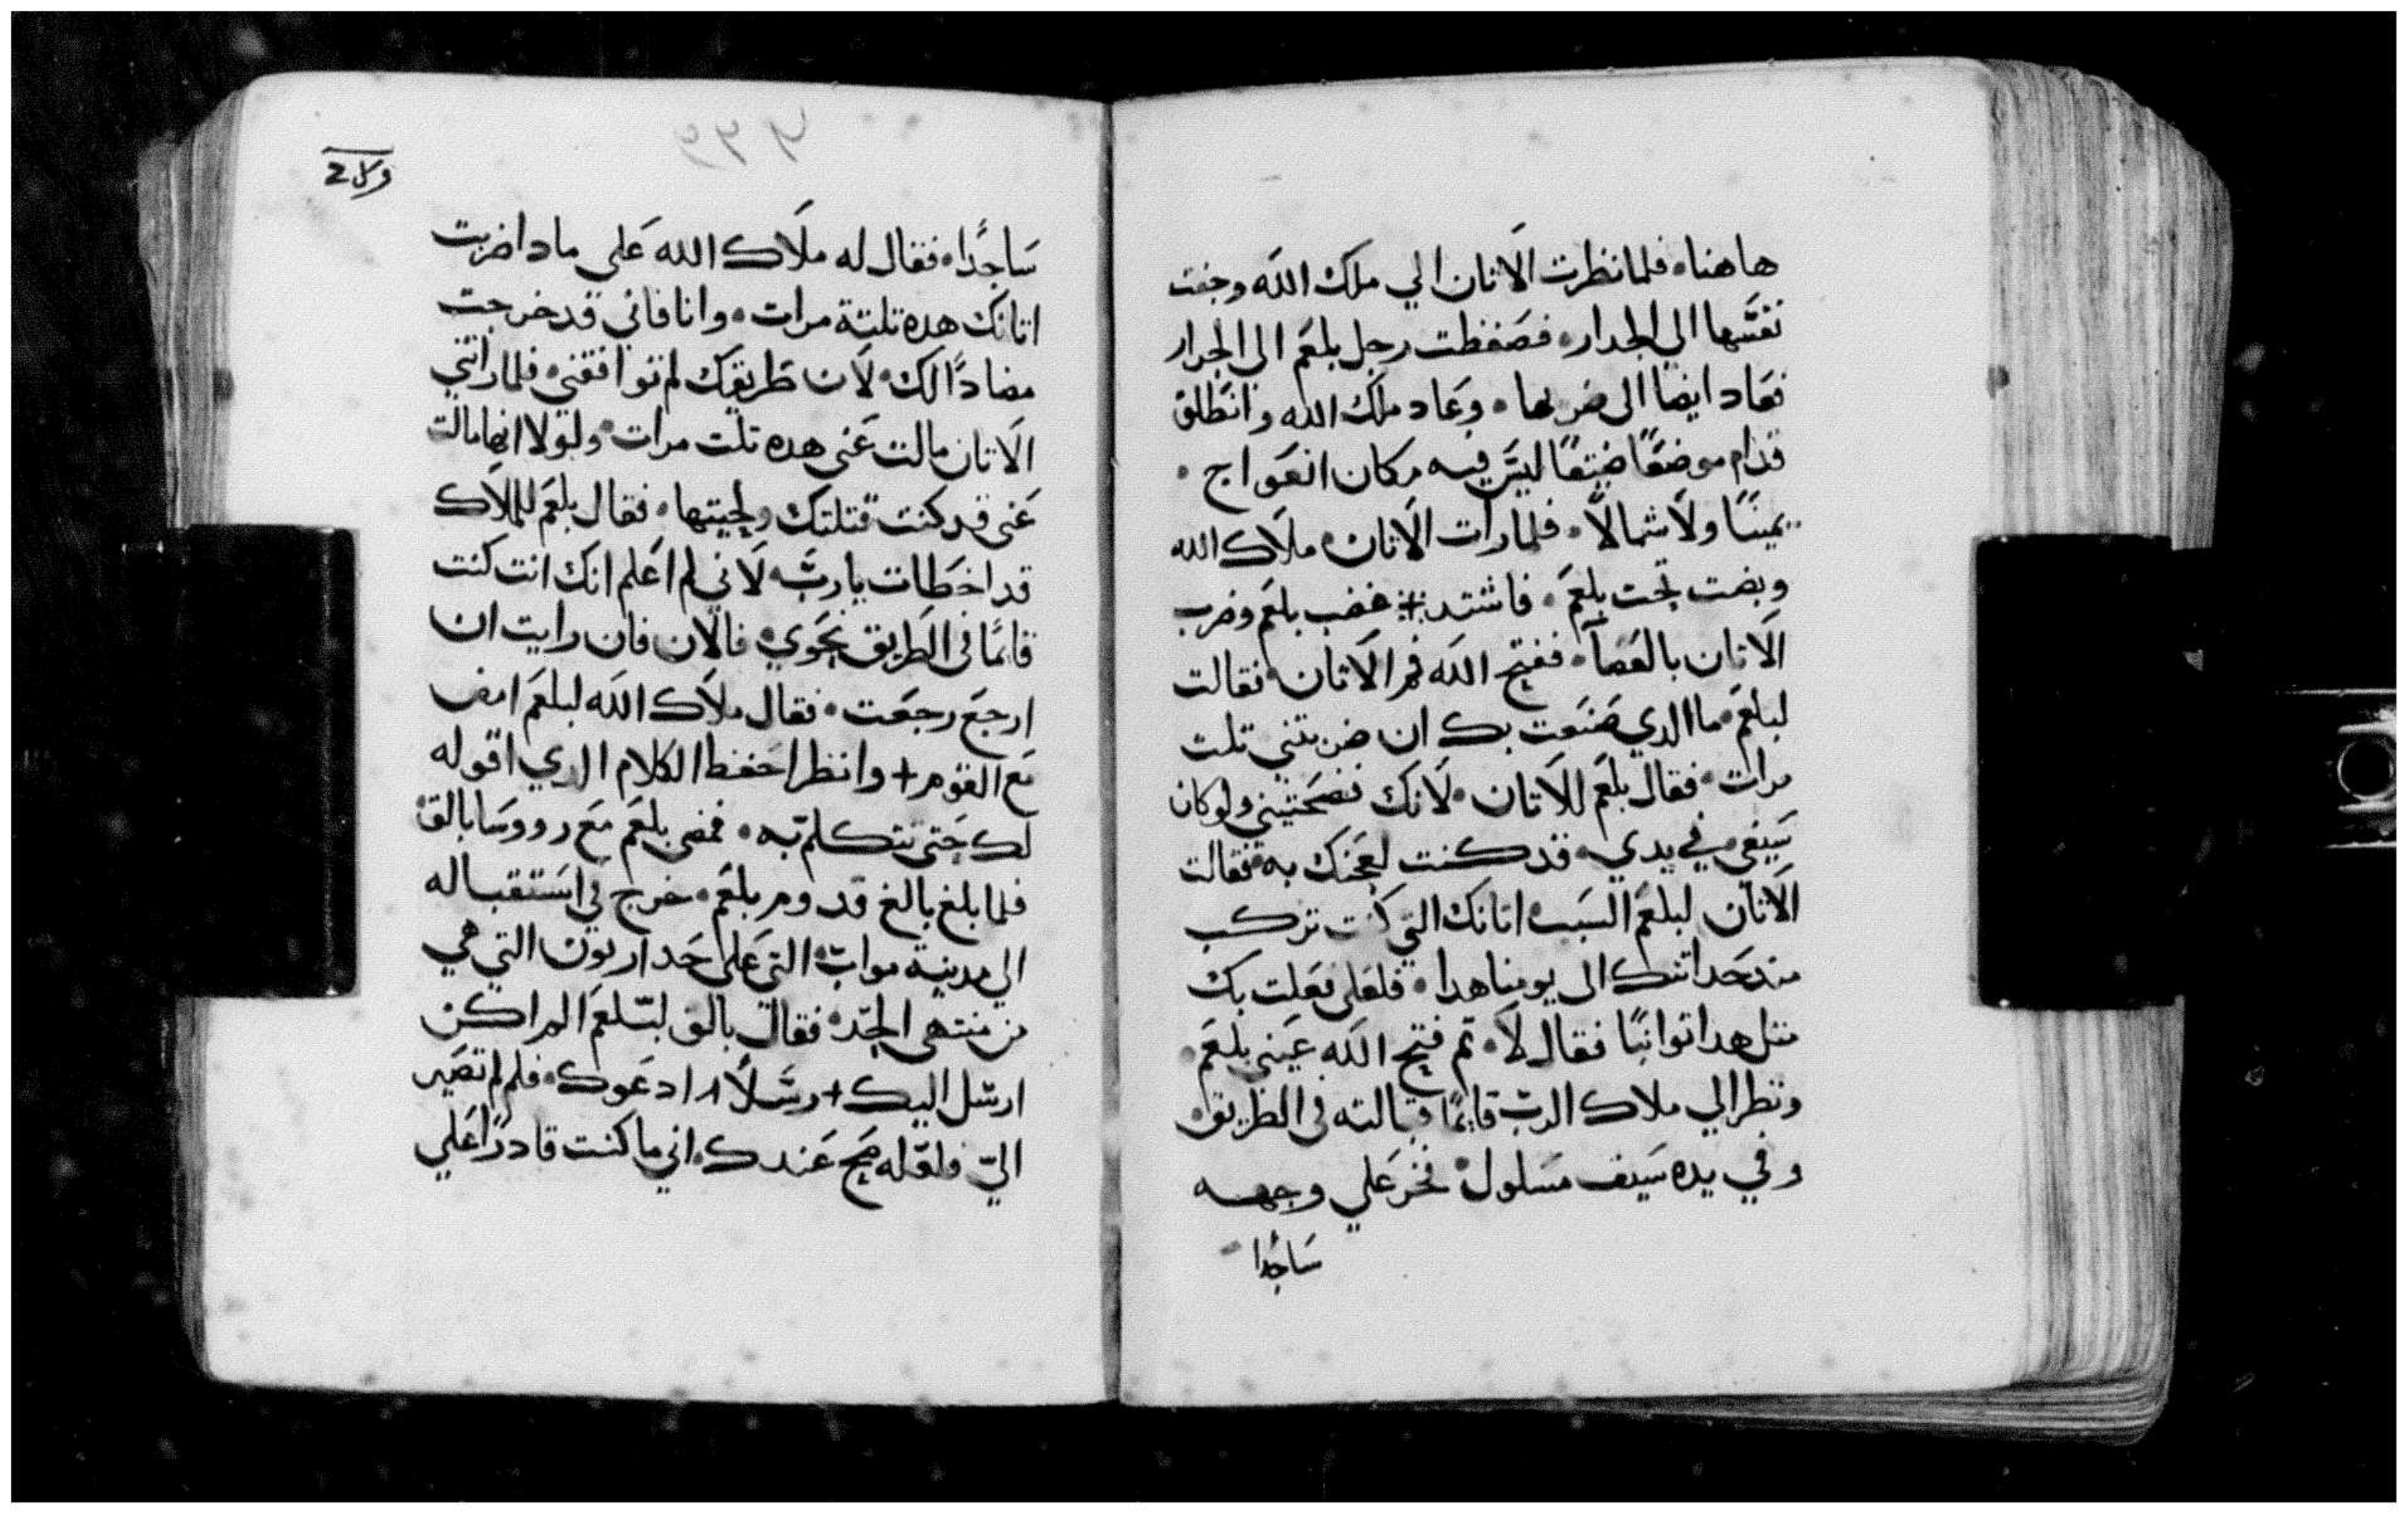 هاهنا۰ فلما نظرت الاتان الي ملاك الله وجفت
نفسها الي الجدار۰ فضغطت رجل بلعم الى الجدار
فعاد ايضا الى ضربها۰ وعاد ملاك الله وانطلق
قدام موضعًا ضيقًا ليس فيه مكان انعواج۰
يمينًا ولا شمالًا۰ فلما رات الاتان ملاك الله
وبضت تحت بلعم۰ فاشتد غضب بلعم وضرب
الاتان بالعصا۰ ففتح الله فم الاتان فقالت
لبلعم ما الدي صنعت بك ان ضربتني تلت
مرات۰ فقال بلعم للاتان۰ لانك فضحتيني ولو كان
سيفي في يدي۰ قد كنت لعجنك به فقالت
الاتان لبلعم السب اتانك التي كنت تركب
مند حداتتك الى يومنا هدا۰ فلعلي فعلت بك
متل هدا توانيًا فقال لا۰ تم فتح الله عيني بلعم۰
ونظر الي ملاك الرب قايمًا قبالته في الطريق۰
وفي يده سيف مسلول۰ فخر علي وجهه
ساجدا
ساجدًا۰ فقال له ملاك الله على مادا ضربت
اتانك هده تلتة مرات۰ وانا فاني قد خرجت
مضاددًا لك۰ لان طريقك لم توافقني۰ فلما راتني
الاتان مالت عني هده تلت مرات۰ ولولا انها مالت
عني قد كنت قتلتك ولحيتها۰ فقال بلعم للملاك
قد اخطات يارب لاني لم اعلم انك انت كنت
قايمًا في الطريق نحوي۰ فالان فان رايت ان
ارجع رجعت۰ فقال ملاك الله لبلعم امض
مع القوم + وانظر احفظ الكلام الدي اقوله
لك حتى تتكلم به۰ فمضى بلعم مع رووسا بالق
فلما بلغ بالغ قدوم بلعم۰ خرج في استقباله
الي مدينة مواب التي على حد ارنون التي هي
من منتهى الحد۰ فقال بالق لبلعم الم اكن
ارسل اليك + رسلًا ادعوك۰ فلم لم تصير
الي فلعله صح عندك۰ اني ما كنت قادرًا علي